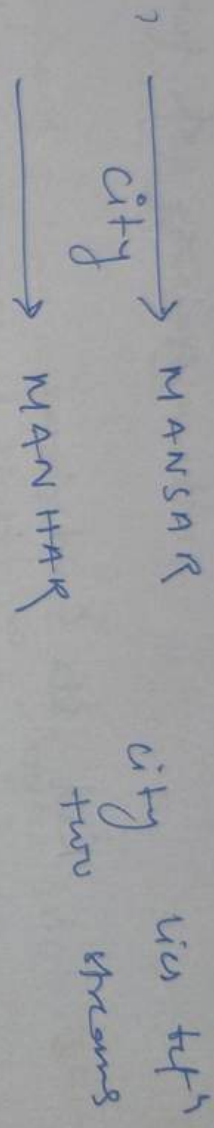 MANSAR
city
MANHAR
city lies betn
two streams